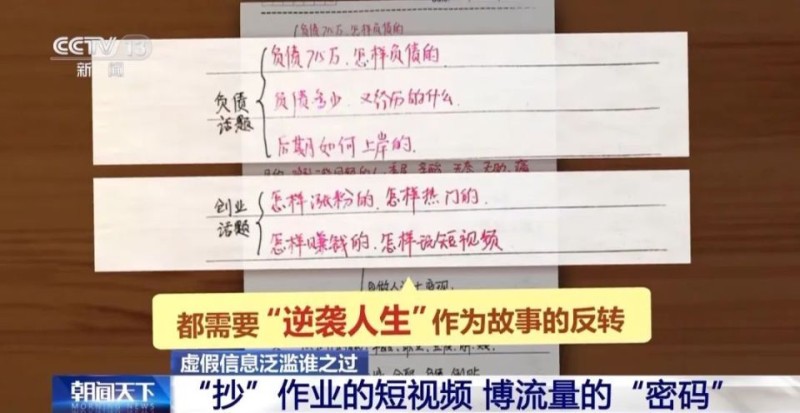 CCTV 13
新闻
负债715万、怎样负债的
负债话题
负债715万、怎样负债的
负债多少、又经历的什么
后期如何上岸的、
创业话题
怎样涨粉的、怎样热门的、
怎样赚钱的、怎样玩短视频
都需要“逆袭人生”作为故事的反转
虚假信息泛滥谁之过
朝闻天下
“抄”作业的短视频 博流量的“密码”